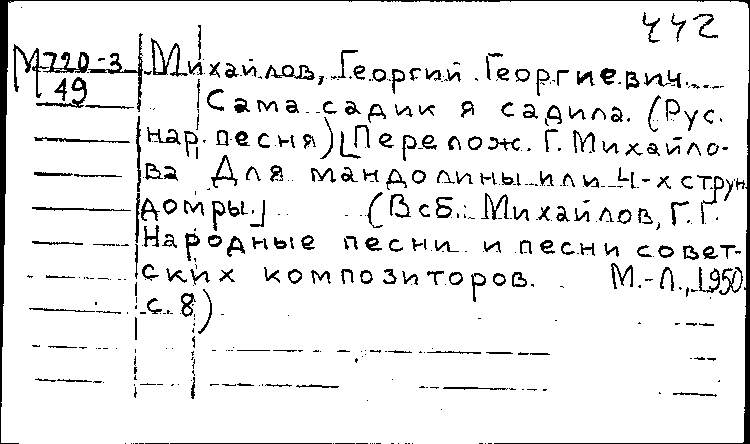 442
М720-3 Михайлов, Георгий Георгиевич.
49 Сама садик я садила. (Рус.
нар. песня) [Перелож. Г. Михайло-
ва Для мандолины или 4-х струн.
домры.] (В сб.: Михайлов, Г. Г.
Народные песни и песни совет-
ских композиторов. М.-Л., 1950.
с. 8)